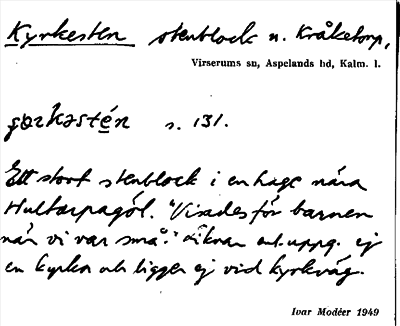 Kyrkesten stenblock n. Kråketorp,
Virserums sn, Aspelands hd, Kalm. l.
s. 131.
Ett stort stenblock i en hage nära
Hultarpagöl. "Visades för barnen
när vi var små." Liknar enl. uppg. ej
en kyrka och ligger ej vid kyrkväg.
Ivar Modéer 1949